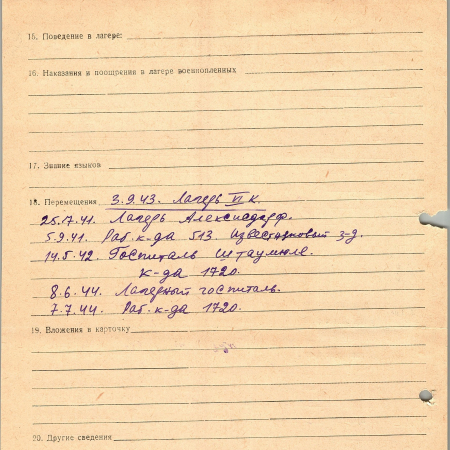 15. Поведение в лагере:
16. Наказания и поощрения в лагере военнопленных
17. Знание языков
18. Перемещения 3.9.43. Лагерь VI К.
25.17.41. Лагерь Александдорф.
5.9.41. Раб. к-да 513. Известковый з-д.
14.5.42. Госпиталь Штаумюле.
к-да 1720.
8.6.44. Лагерный госпиталь.
7.7.44. Раб. к-да 1720.
19. Вложения в карточку
20. Другие сведения